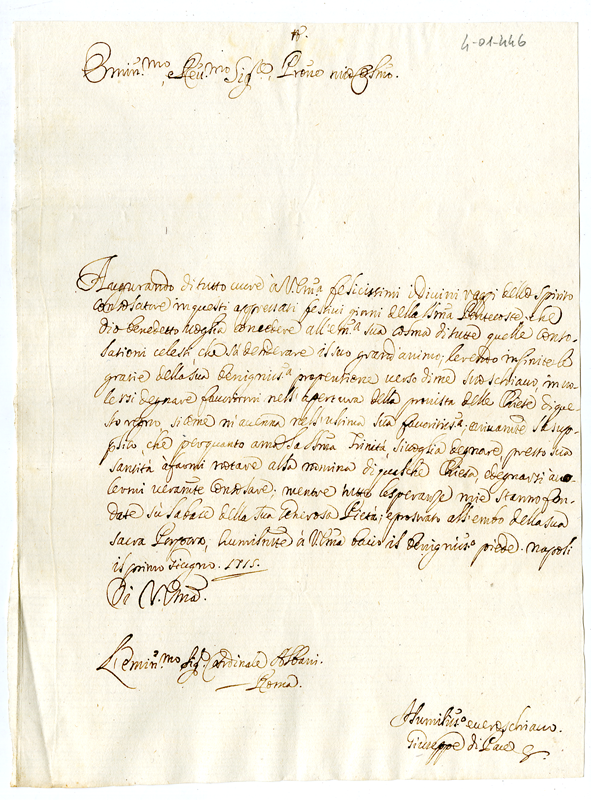 4-01-446
Emin.mo e Reu.mo Sig.re Prone mio Cosmo.
Augurando di tutto cuore à V. Em.a felicissimi i divini raggi dello Spirito
Consolatore in questi appressati festivi giorni della S.ma Pentecoste, che
Dio benedetto voglia concedere all'em.a sua colma di tutte quelle conso-
lationi celesti, che sà desiderare il suo grand'animo; le rendo infinite le
gratie della sua benigniss.a propentione verso di me suo schiavo, in uo-
lersi degnare fauorirmi nell'apertura della provista delle Chiese di que-
sto regno, si come m'accenna nell'ultima sua fauoritiss.a, e vivamente la sup-
plico che per quanto ama la S.ma Trinità, si voglia degnare, presto sua
santità à farmi notare alla nomina di qualche Chiesa, e degnarsi auo-
lermi veramente consolare; mentre tutte le speranze mie stanno fon-
date sù la base della sua Generosa Pietà; e prostrato all'embo della sua
sacra Porpora, humilmente à V. Em.a bacio il benigniss.o piede. Napoli
il primo Giugno. 1715.
Di V. Em.a
L'emin.mo Sig.r Cardinale Albani.
Roma.
Humiliss.o e vero schiavo.
Giuseppe di Pace